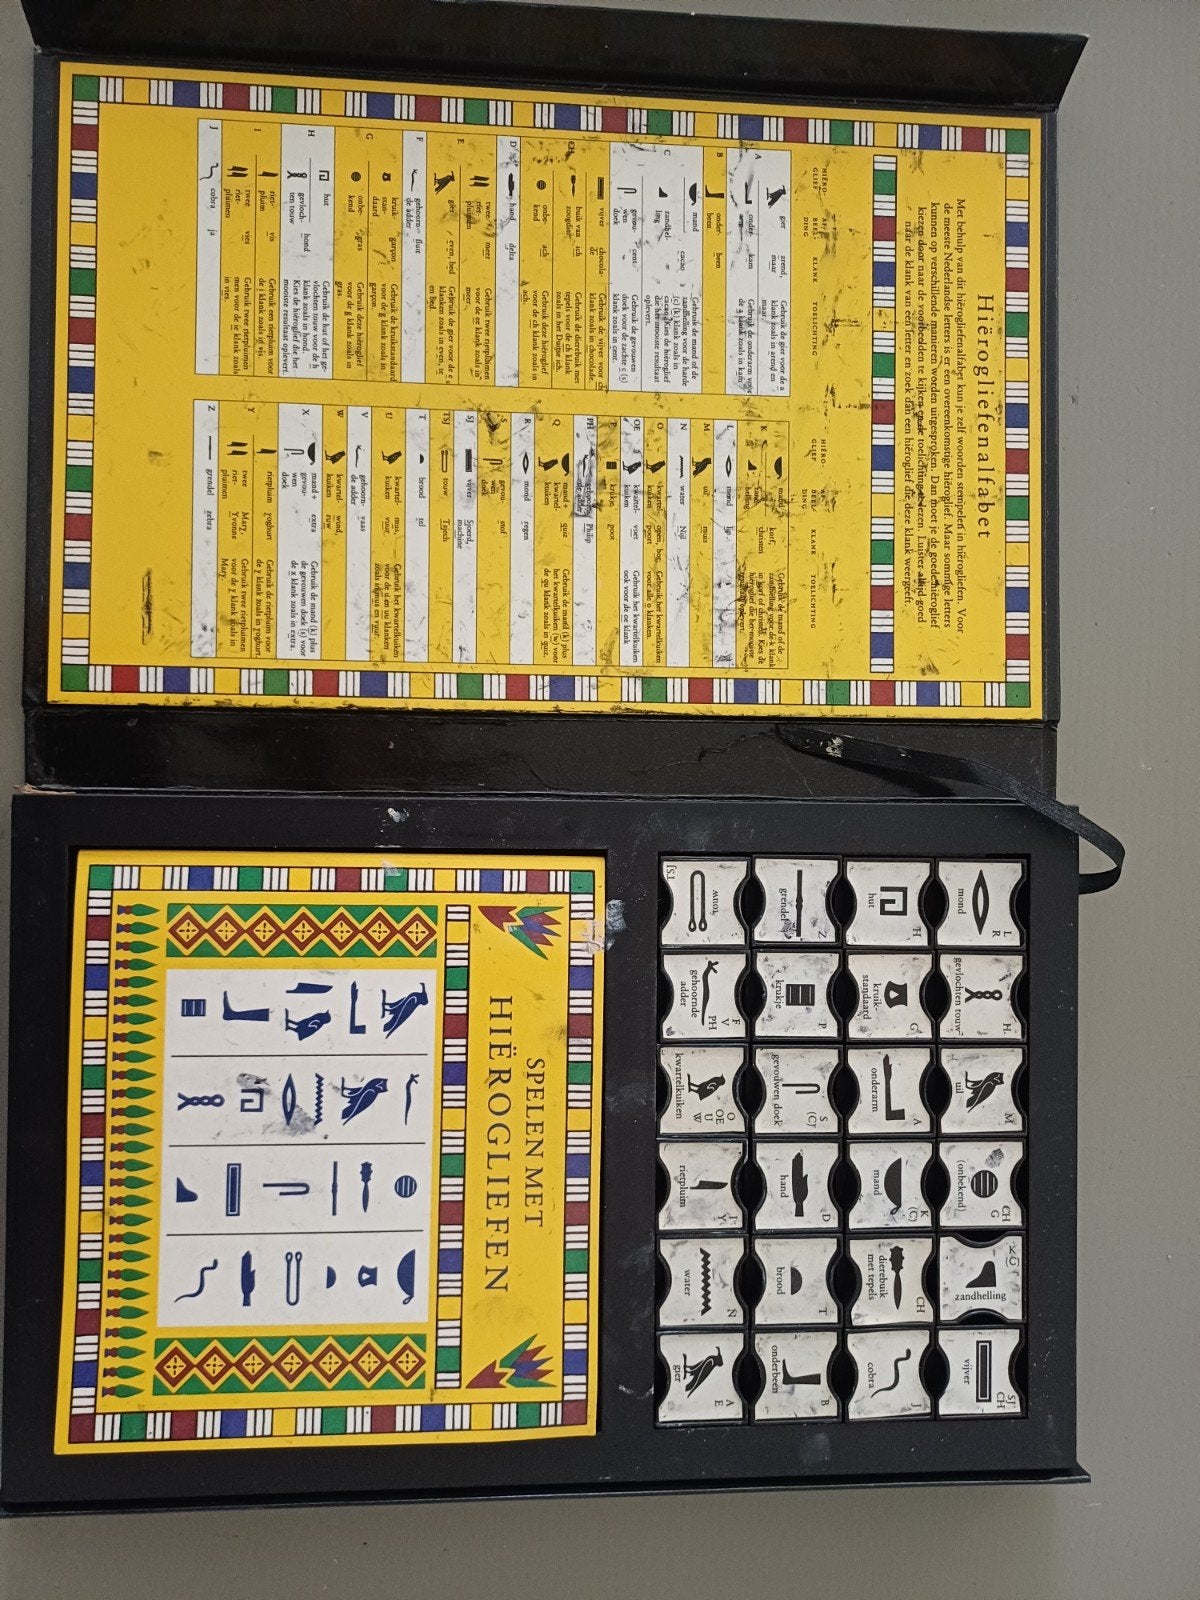 Hiërogliefenalfabet
Met behulp van dit hiërogliefenalfabet kun je zelf woorden stempelen in hiërogliefen. Voor
de meeste Nederlandse letters is er een overeenkomstige hiëroglief. Maar sommige letters
kunnen op verschillende manieren worden uitgesproken. Dan moet je de goede hiëroglief
kiezen door naar de voorbeelden te kijken en de toelichting te lezen. Luister altijd goed
naar de klank van een letter en zoek dan een hiëroglief die deze klank weergeeft.
HIËRO-
GLIEF
AF-
BEEL-
DING
KLANK
TOELICHTING
A
gier
arend,
maar
Gebruik de gier voor de a
klank zoals in arend en
maar.
onder-
arm
kam
Gebruik de onderarm voor
de a klank zoals in kam
B
onder-
been
been
C
mand
cacao
Gebruik de mand of de
zandhelling voor de harde
c (k) klank zoals in
cacao. Kies de hiëroglief
die het mooiste resultaat
oplevert.
zandhel-
ling
gevou-
wen
doek
cent
Gebruik de gevouwen
doek voor de zachte c (s)
klank zoals in cent.
CH
vijver
chocola-
de
Gebruik de vijver voor ch
klank zoals in chocolade.
buik van
zoogdier
ich
Gebruik de dierebuik met
tepels voor de ch klank
zoals in het Duitse ich.
onbe-
kend
ach
Gebruik deze hiëroglief
voor de ch klank zoals in
ach.
D
hand
delta
E
twee
riet-
pluimen
meer
Gebruik twee rietpluimen
voor de ee klank zoals in
meer.
gier
even, bed
Gebruik de gier voor de e
klanken zoals in even, te
en bed.
F
gehoorn-
de adder
fluit
G
kruik-
stan-
daard
garçon
Gebruik de kruikstandaard
voor de g klank zoals in
garçon.
onbe-
kend
gras
Gebruik deze hiëroglief
voor de g klank zoals in
gras.
H
hut
gevloch-
ten touw
hond
Gebruik de hut of het ge-
vlochten touw voor de h
klank zoals in hond.
Kies de hiëroglief die het
mooiste resultaat oplevert.
I
riet-
pluim
vis
Gebruik een rietpluim voor
de i klank zoals in vis.
twee
riet-
pluimen
vies
Gebruik twee rietpluimen
men voor de ie klank zoals
in vies.
J
cobra
ja
HIËRO-
GLIEF
DING
KLANK
TOELICHTING
K
mand
korf,
christen
Gebruik de mand of de
zandhelling voor de k klank
in korf of christen. Kies de
hiëroglief die het mooiste
L
mond
lip
M
uil
muis
N
water
Nijl
O
kwartel-
kuiken
open, bog,
poort
Gebruik het kwartelkuiken
voor alle o klanken.
OE
kwartel-
kuiken
voet
Gebruik het kwartelkuiken
ook voor de oe klank
P
krukje
poort
PH
gehoorn-
de adder
Philip
Q
mand +
kwartel-
kuiken
quiz
Gebruik de mand (k) plus
het kwartelkuiken (w) voor
de qu klank zoals in quiz.
R
mond
regen
S
gevou-
wen
doek
stof
SJ
vijver
Sjoerd,
machine
TSJ
touw
Tsjech
T
brood
tel
U
kwartel-
kuiken
mus,
vuur
Gebruik het kwartelkuiken
voor de u en uu klanken
zoals in mus en vuur.
V
gehoorn-
de adder
vaas
W
kwartel-
kuiken
wind,
ruw
X
mand +
gevou-
wen
doek
extra
Gebruik de mand (k) plus
de gevouwen doek (s) voor
de x klank zoals in extra.
Y
rietpluim
yoghurt
Gebruik de rietpluim voor
de y klank zoals in yoghurt.
twee
riet-
pluimen
Mary,
Yvonne
Gebruik twee rietpluimen
voor de y klank zoals in
Mary.
Z
grendel
zebra
L
R
mond
H
gevlochten touw
M
uil
CH
G
(onbekend)
K
zandhelling
SJ
CH
vijver
H
hut
G
kruik-
standaard
A
onderarm
K
(C)
mand
CH
dierebuik
met tepels
J
cobra
Z
grendel
P
krukje
S
(C)
gevouwen doek
D
hand
T
brood
B
onderbeen
TSJ
touw
F
V
PH
gehoornde
adder
O
OE
U
W
kwartelkuiken
I
Y
rietpluim
N
water
A
E
gier
SPELEN MET
HIËROGLIEFEN